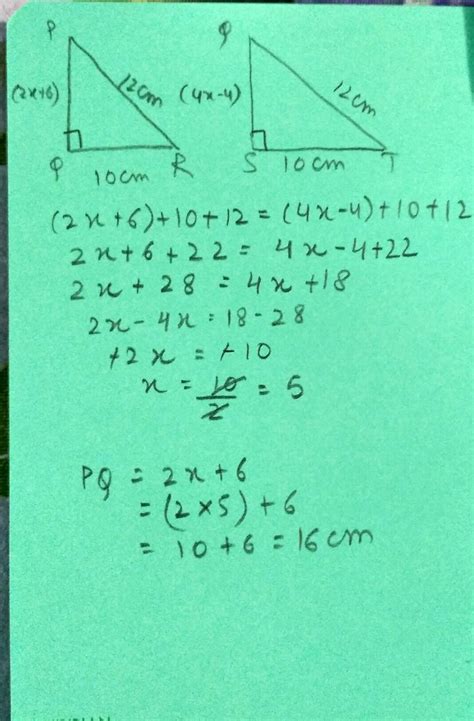 P
(2x+6)
12cm
Q
10cm
R
Q
(4x-4)
12cm
S
10cm
T
(2x+6)+10+12 = (4x-4)+10+12
2x+6+22 = 4x-4+22
2x+28 = 4x+18
2x-4x = 18-28
+2x = +10
x = 10/2 = 5
PQ = 2x+6
= (2×5)+6
= 10+6 = 16cm